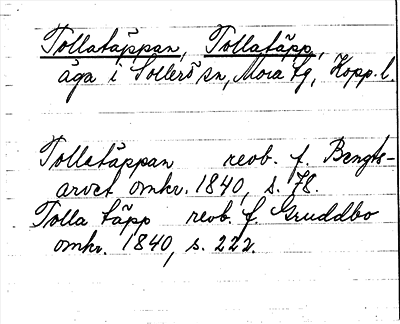 Tollatäppan, Tollatäpp,
äga i Sollerö sn, Mora tg, Kopp. l.
Tollatäppan revb. f. Bengts-
arvet omkr. 1840, s. 78.
Tolla täpp revb. f. Gruddbo
omkr. 1840, s. 222.